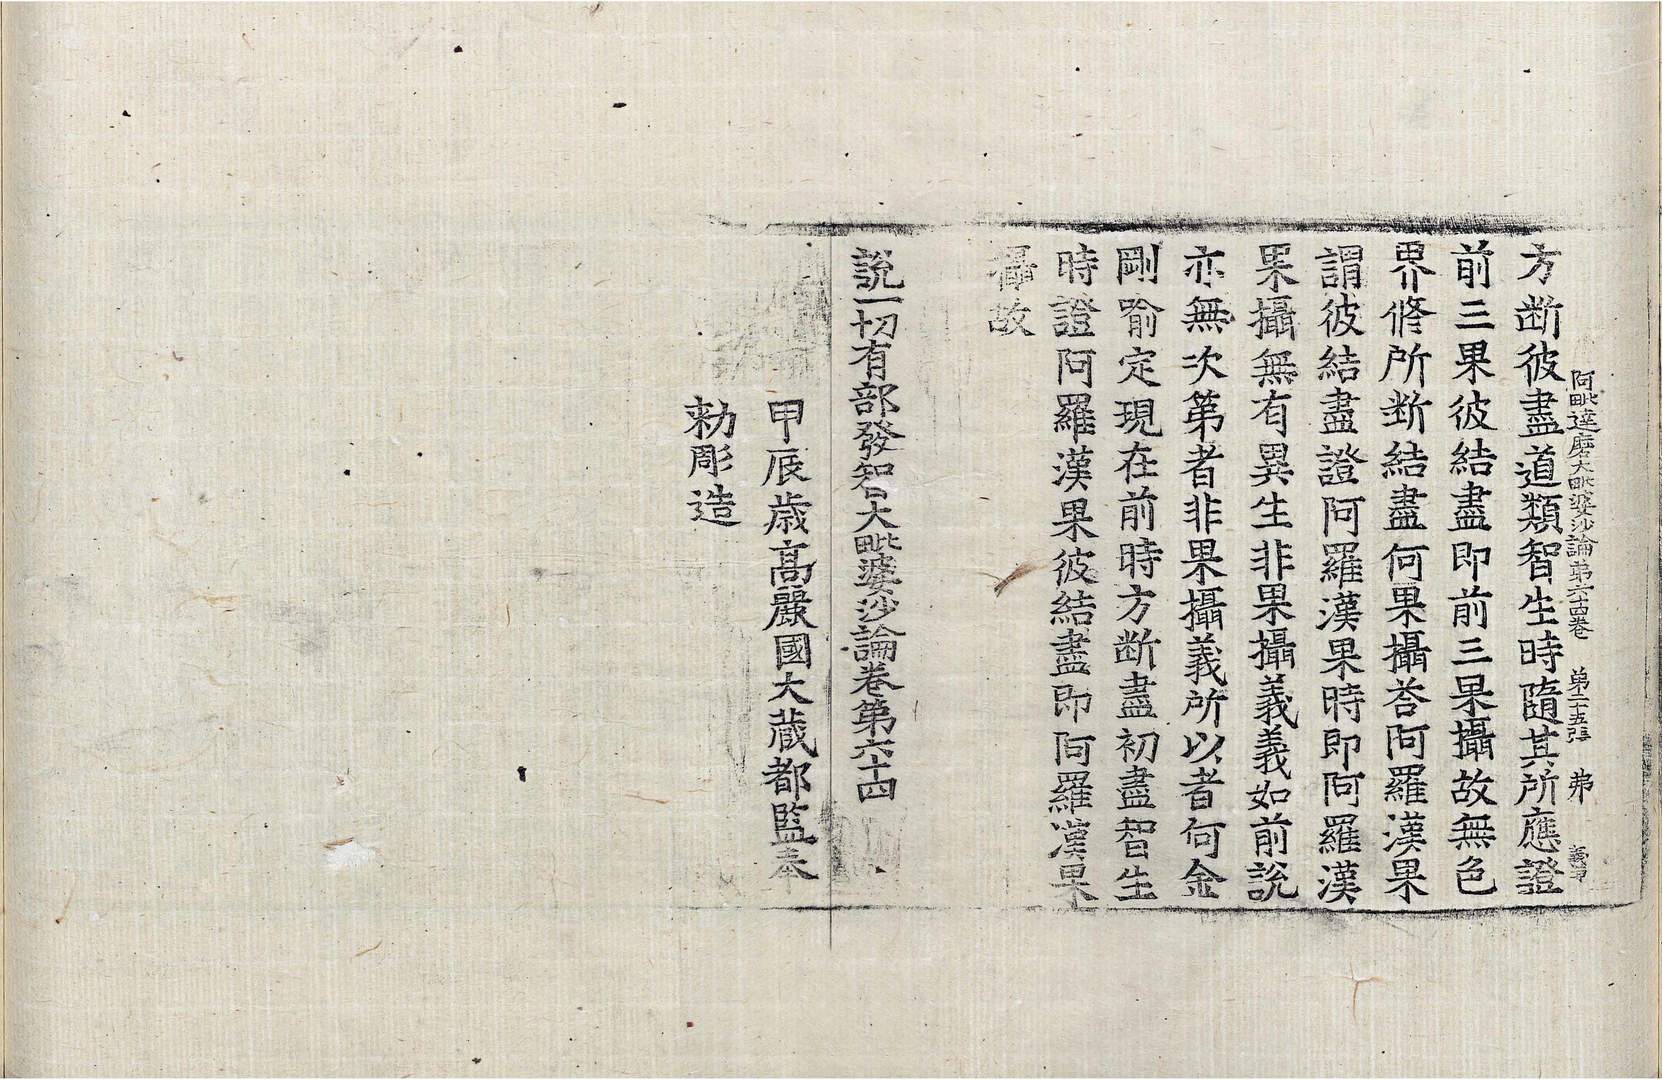 阿毗達磨大毗婆沙論第六十四卷 第二十五張 弗
方断彼盡道類智生時隨其所應證
前三果彼結盡即前三果攝故無色
界修所断結盡何果攝荅阿羅漢果
謂彼結盡證阿羅漢果時即阿羅漢
果攝無有異生非果攝義義如前說
亦無次第者非果攝義所以者何金
剛喻定現在前時方断盡初盡智生
時證阿羅漢果彼結盡即阿羅漢果
攝故
說一切有部發智大毗婆沙論卷第六十四
甲辰歲高麗國大藏都監奉
勑彫造